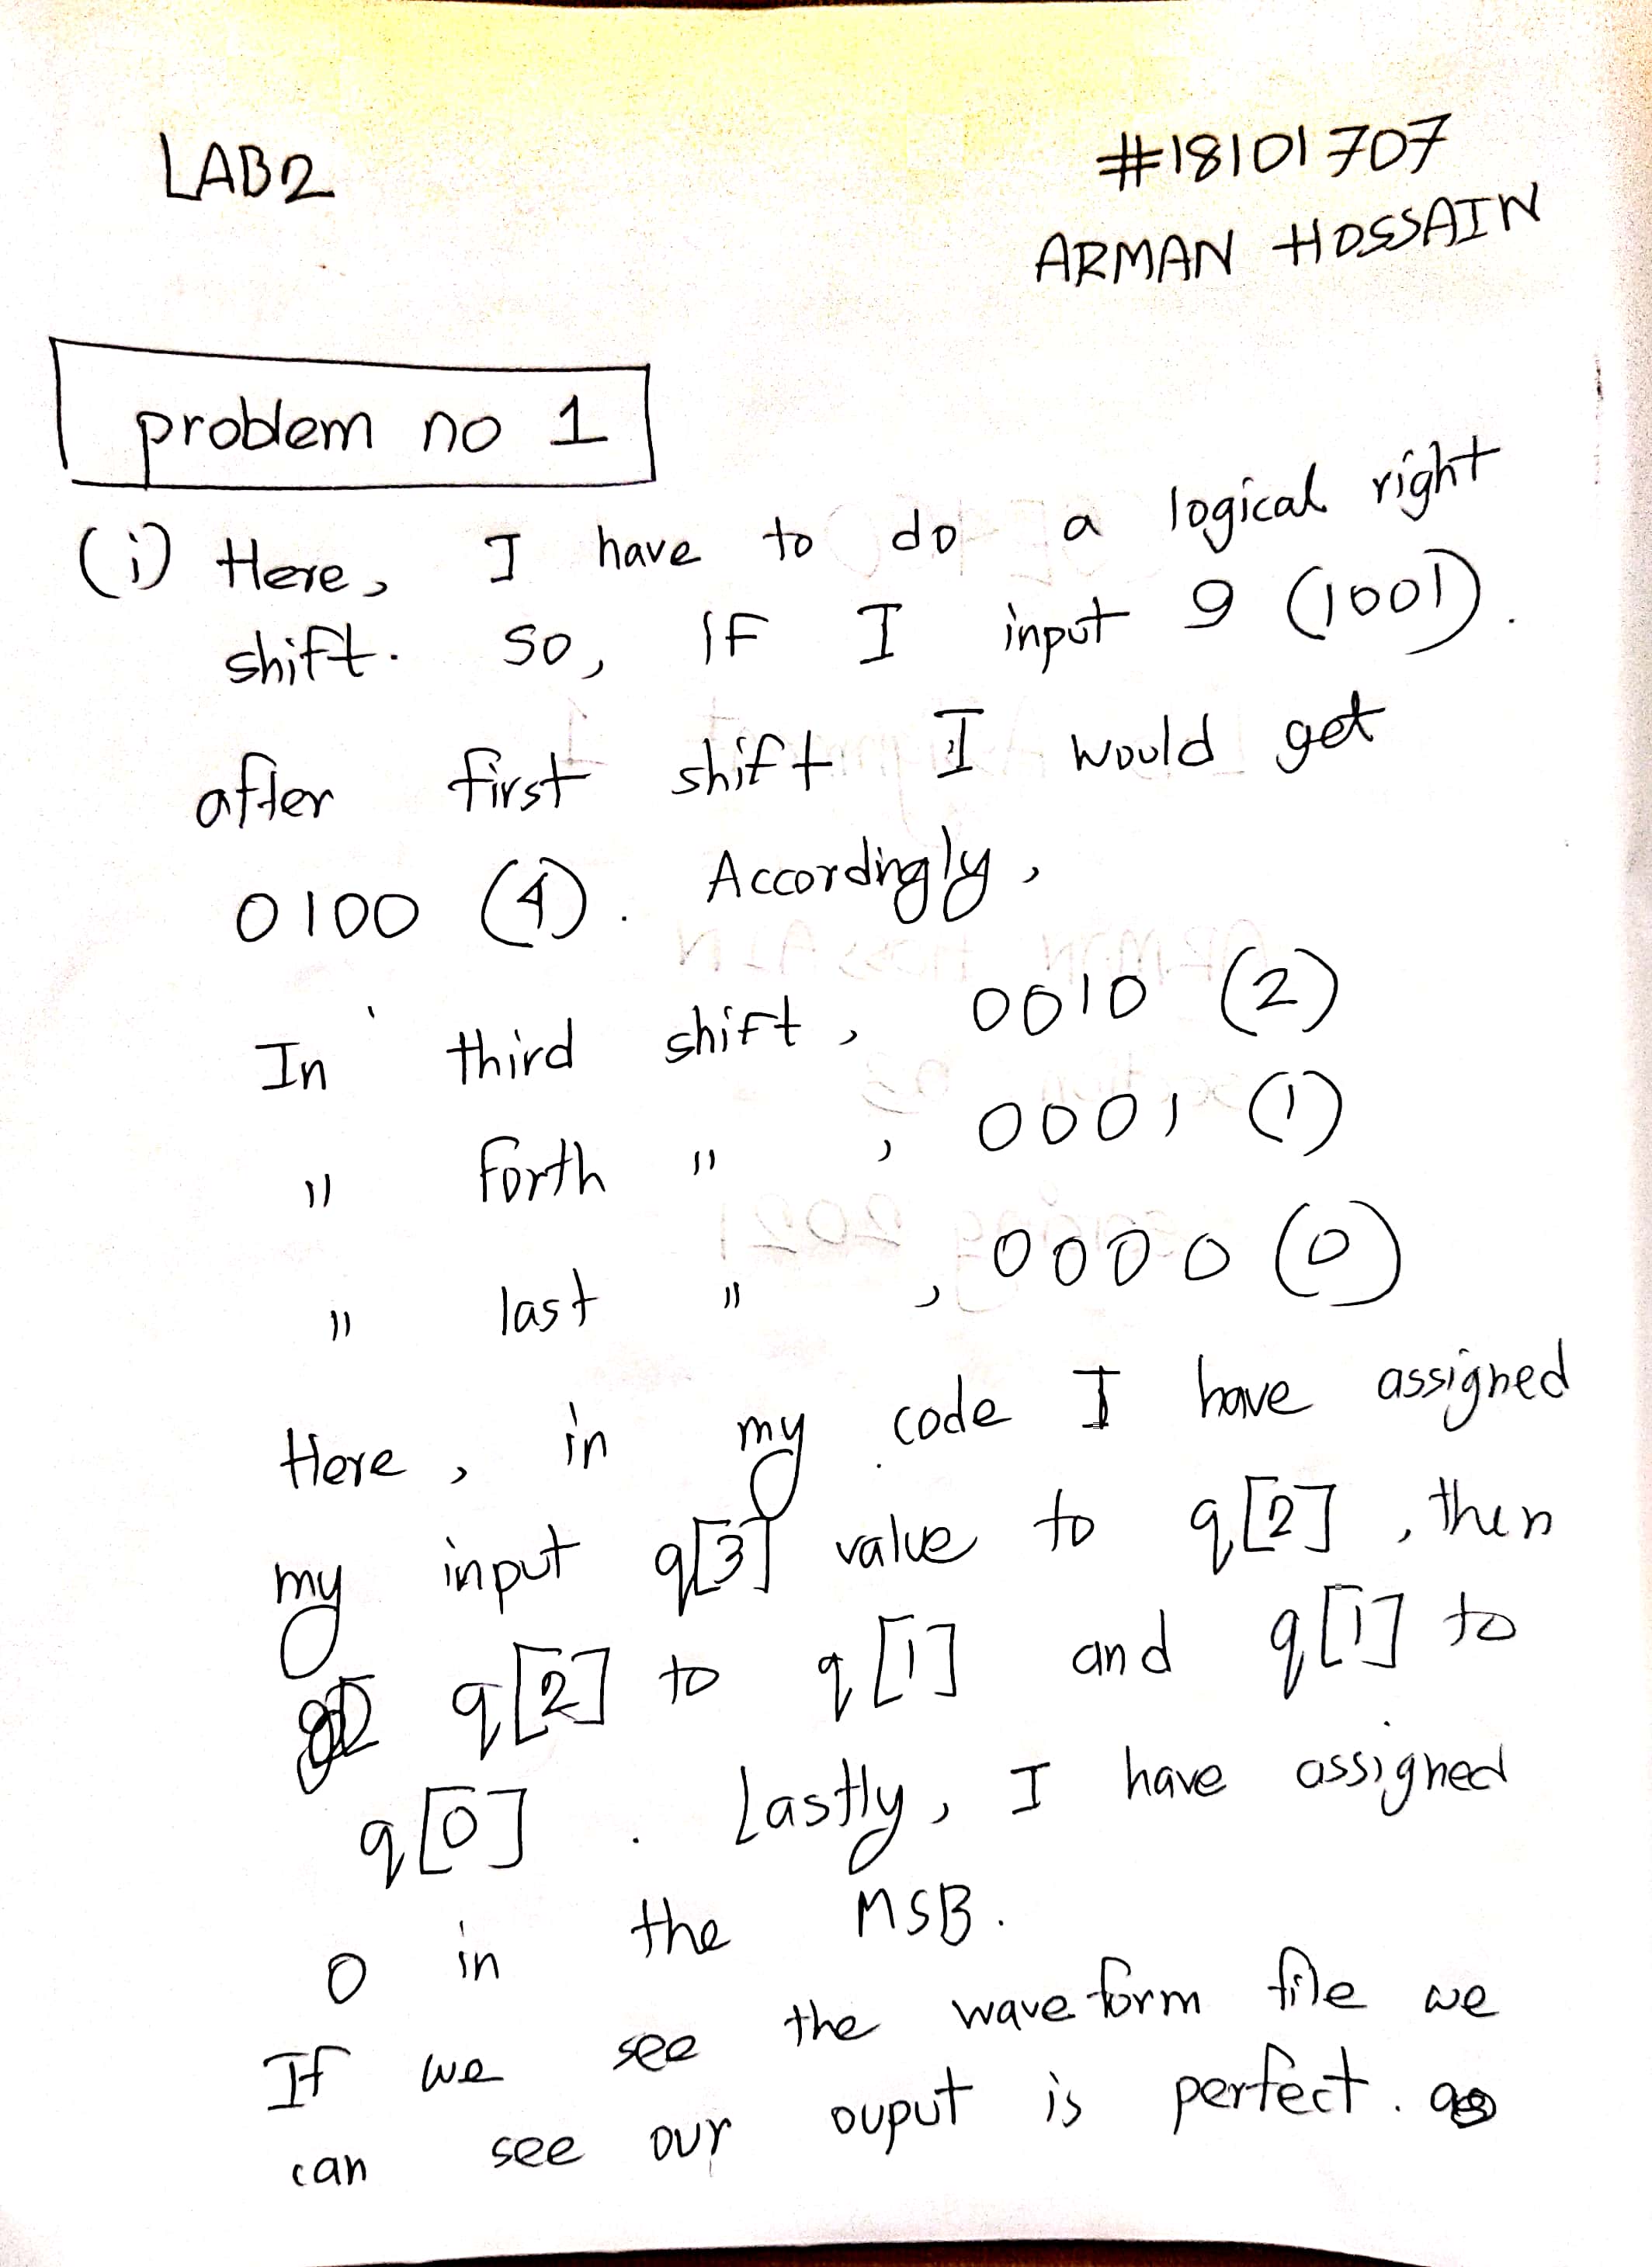 LAB2
#18101707
ARMAN HOSSAIN
problem no 1
(i) Here, I have to do a logical right
shift. So, IF I input 9 (1001).
after first shift I would get
0100 (4). Accordingly,
In third shift, 0010 (2)
" forth " , 0001 (1)
" last " , 0000 (0)
Here, in my code I have assigned
my input q[3] value to q[2], then
q[2] to q[1] and q[1] to
q[0]. Lastly, I have assigned
0 in the MSB.
If we see the wave form file we
can see our ouput is perfect.